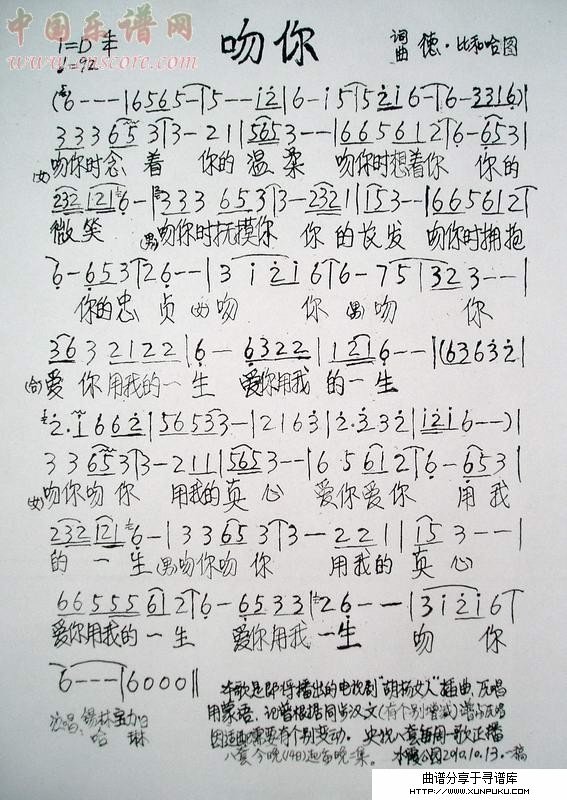 中国乐谱网
www.cnscore.com
1=D 4/4
♩=92
吻你
词曲 德·比和哈图
(6---|6565-|5--i2|6-i5|52i6-|6-3316)|
3336533-21|5653--|6656126-653|
(女)吻你时念着 你的温柔 吻你时想着你 你的
2321216-|33365 33-2321|153--|665612
微笑 (男)吻你时抚摸你 你的发 吻你时拥抱
6-653|26--|3i2i6|6-75|323--|
你的忠贞 (女)吻你 (男)吻你
3632122|6-6322|1216--|(63632|
(合)爱你用我的一生 爱你用我的一生
2.i662|56533-|2163|2.232|i2i6--)|
3365 33-211|5653--|656126-653|
(女)吻你吻你 用我的真心 爱你爱你 用我
2321216-|3365 33-221|153--|
的一生 (男)吻你吻你 用我的真心
66555612|6-6533|26---|3i2i6
爱你用我的一生 爱你用我一生 吻你
6---|6000‖
本歌是即将播出的电视剧"胡杨女人"插曲、原唱
演唱、锡林宝力日
用蒙语、记谱根据同步汉文(有个别增减)谱与原唱
哈 琳
因适配需要有个别变动。央视八套每周一歌正播
八套今晚(14日)起每晚二集。水霞公园2010.10.13.一稿
曲谱分享于寻谱库
HTTP://WWW.XUNPUKU.COM